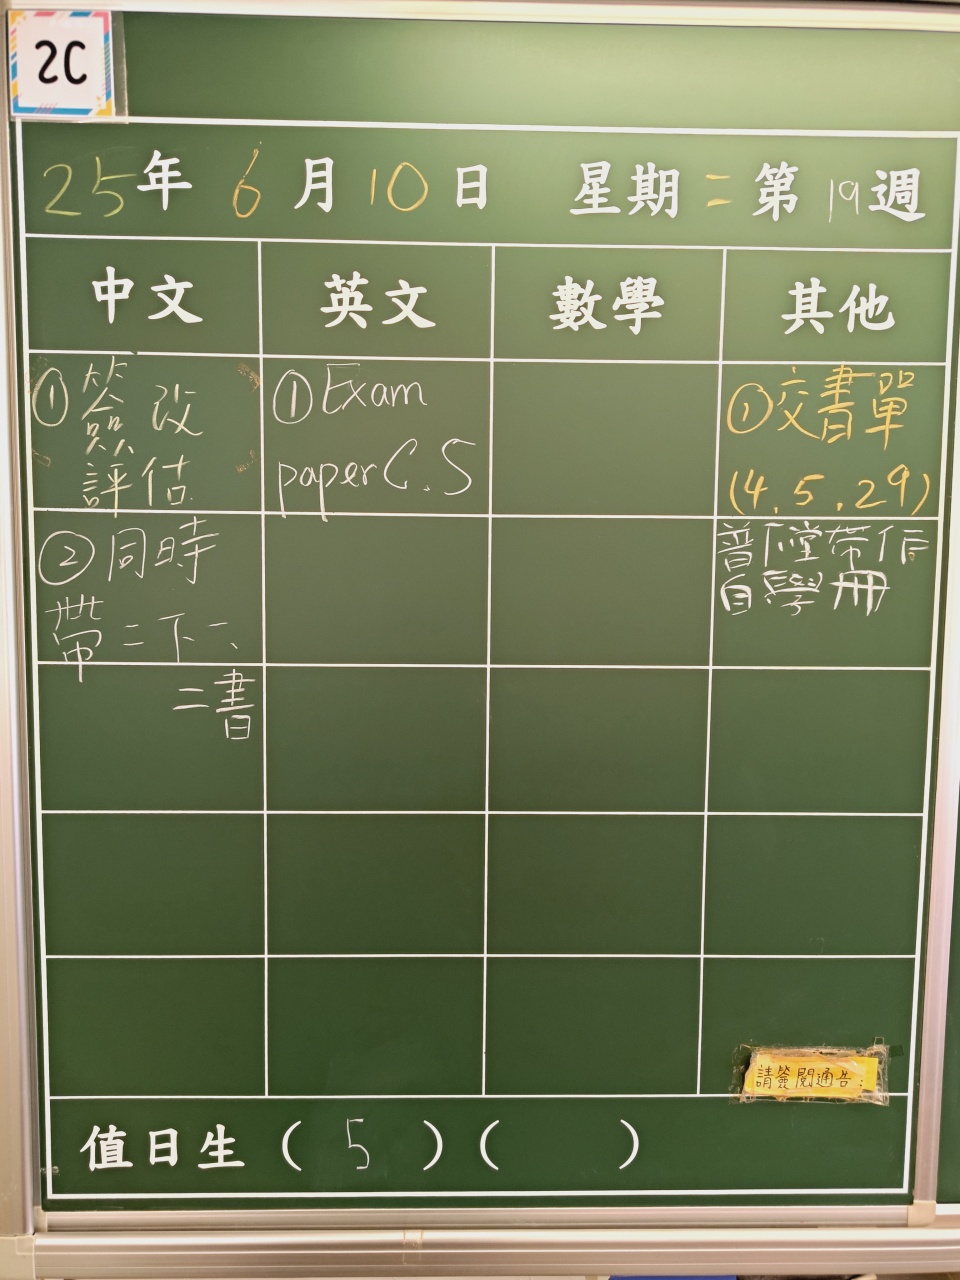 2C
25年 6月10日 星期二 第19週
中文 英文 數學 其他
①簽改
評估
②同時
帶二下一、
二書
①Exam
paper C.S
①交書單
(4.5.29)
普下堂帶
自學冊
請簽閱通告:
值日生 ( 5 ) ( )